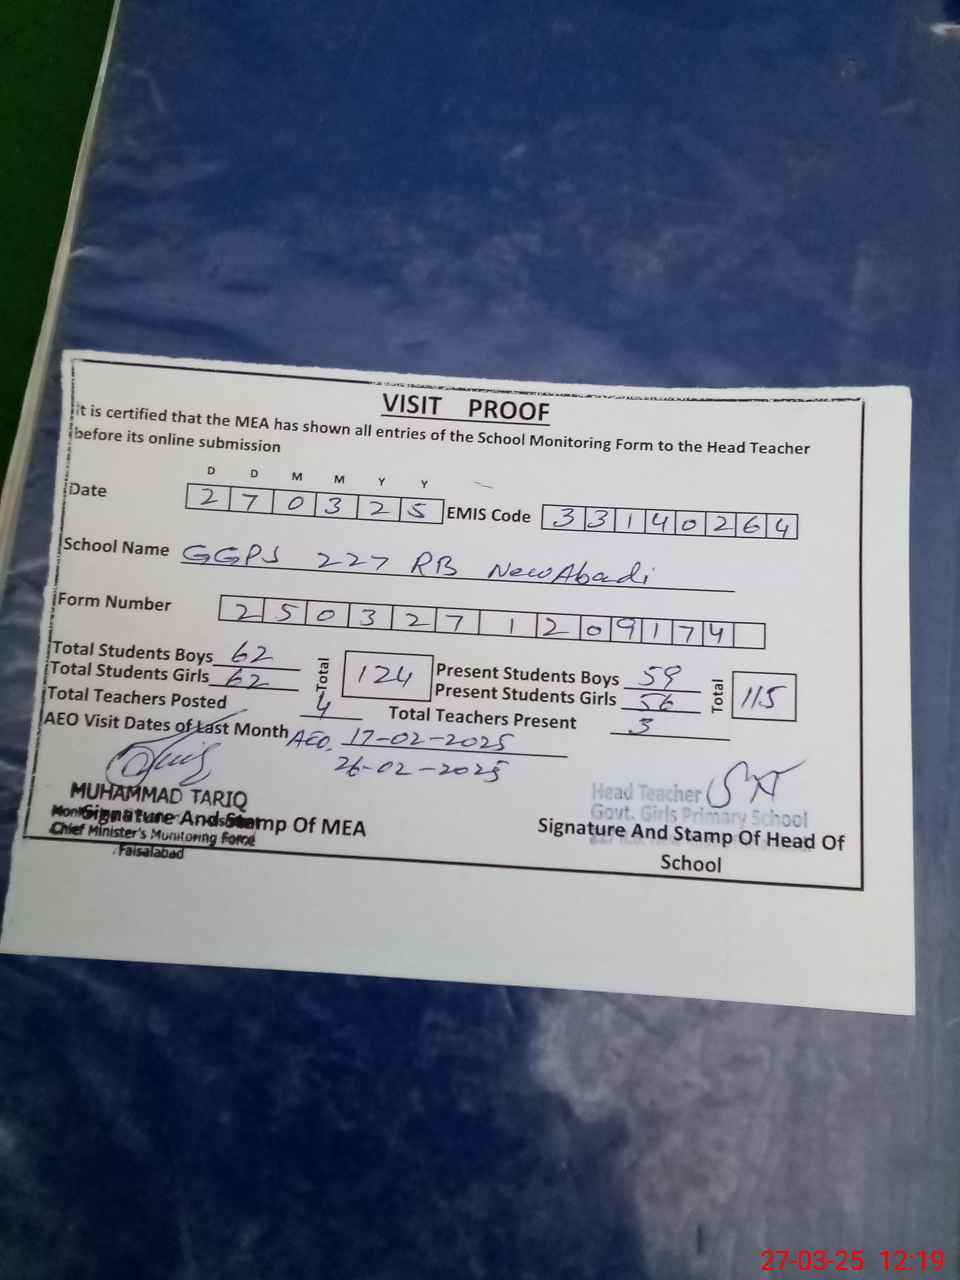 VISIT PROOF
It is certified that the MEA has shown all entries of the School Monitoring Form to the Head Teacher
before its online submission
D D M M Y Y
Date 2 7 0 3 2 5 EMIS Code 3 3 1 4 0 2 6 4
School Name GGPS 227 RB New Abadi
Form Number 2 5 0 3 2 7 1 2 0 9 1 7 4
Total Students Boys 62 Total 124 Present Students Boys 59 Total 115
Total Students Girls 62 Present Students Girls 56
Total Teachers Posted 4 Total Teachers Present 3
AEO Visit Dates of Last Month AEO. 17-02-2025
26-02-2025
MUHAMMAD TARIQ
Signature And Stamp Of MEA
Chief Minister's Monitoring Force
Faisalabad
Head Teacher
Govt. Girls Primary School
Signature And Stamp Of Head Of
School
27-03-25 12:19